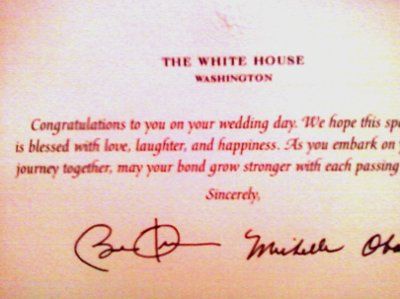 THE WHITE HOUSE
WASHINGTON
Congratulations to you on your wedding day. We hope this spe
is blessed with love, laughter, and happiness. As you embark on y
journey together, may your bond grow stronger with each passing
Sincerely,
Michelle Oba